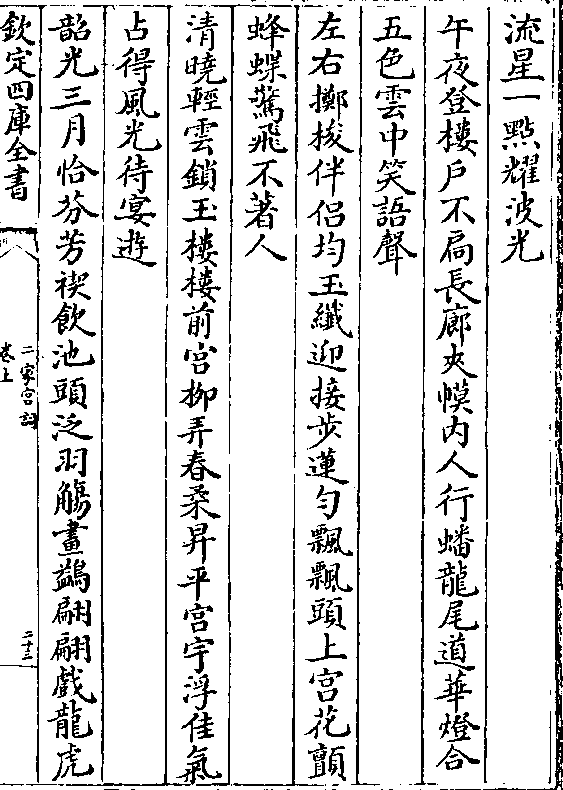 流星一點耀波光
午夜登樓户不扃長廊夾幙内人行蟠龍尾道華燈合
五色雲中笑語聲
左右擲梭伴侣均玉纖迎接步蓮勻飄飄頭上宫花顫
蜂蝶驚飛不著人
清曉輕雲鎖玉樓樓前宫柳弄春柔昇平宫宇浮佳氣
占得風光待宴遊
韶光三月怡芬芳禊飲池頭泛羽觴畫鷁翩翩戲龍虎
欽定四庫全書
二家宫詞
卷上
二十三